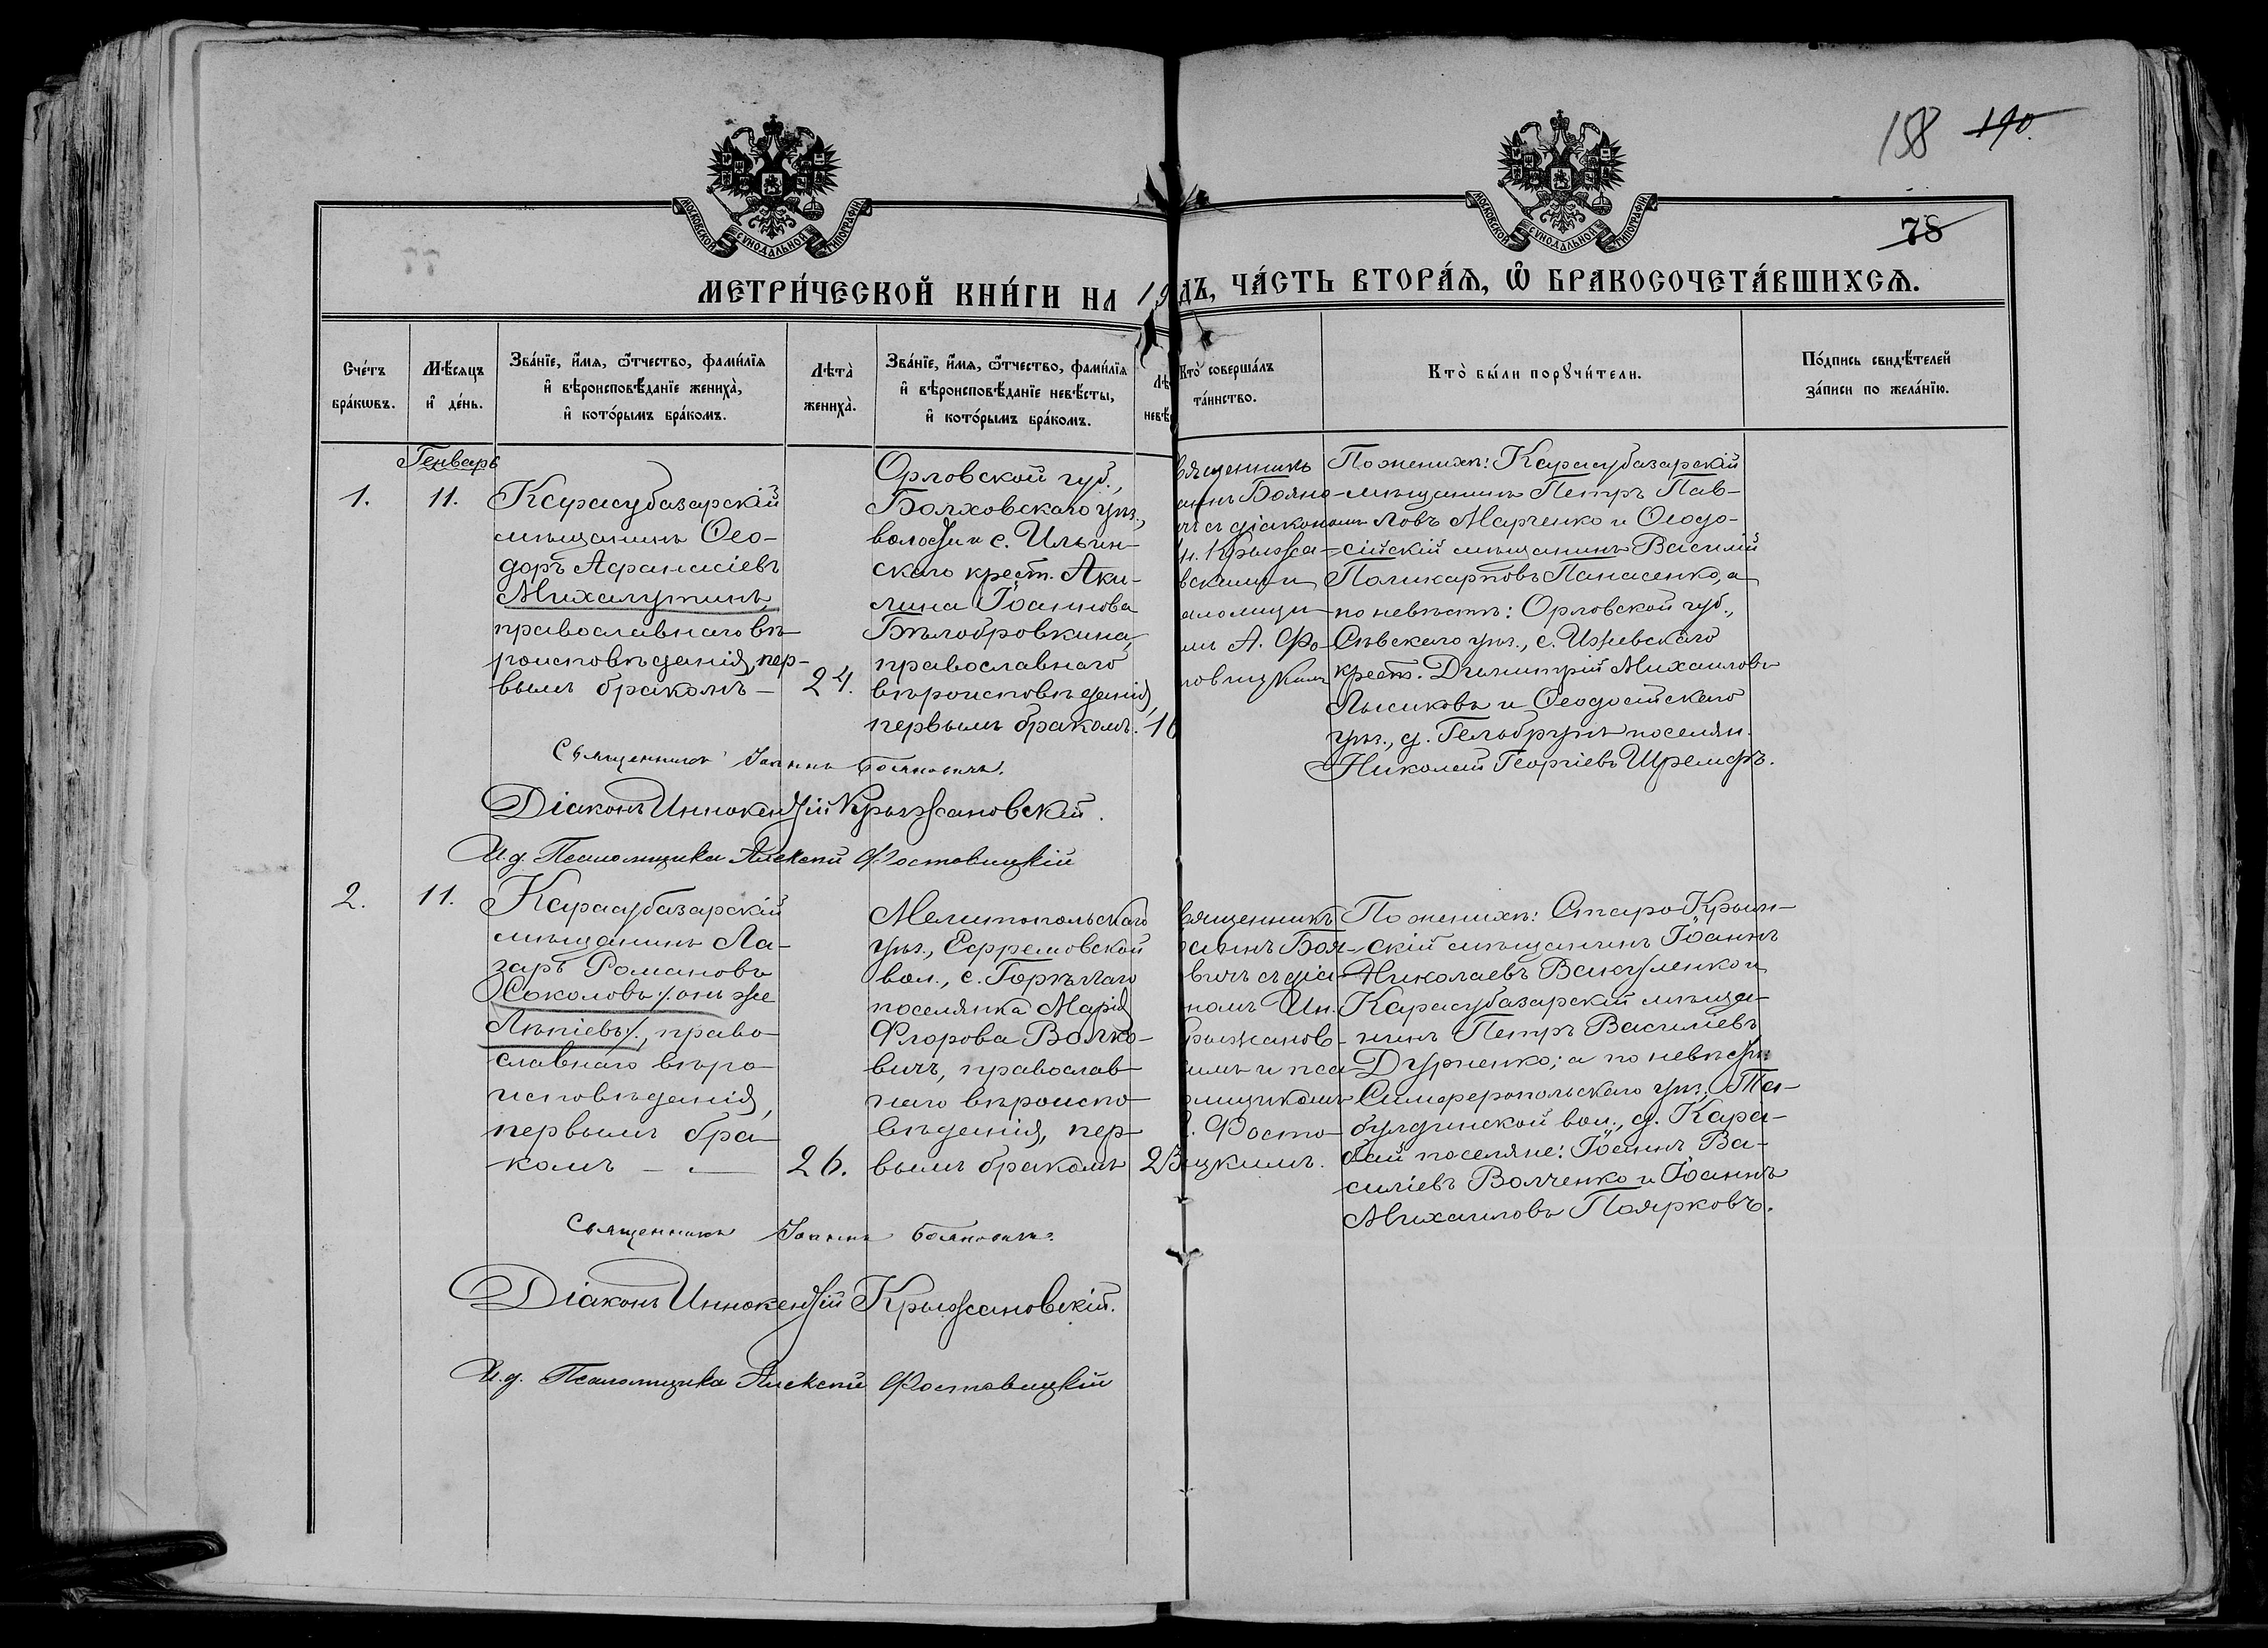 158 190.
78
МОСКОВСКОЙ СѴНОДАЛЬНОЙ ТИПОГРАФІИ
МОСКОВСКОЙ СѴНОДАЛЬНОЙ ТИПОГРАФІИ
МЕТРИ́ЧЕСКОЙ КНИ́ГИ НА 19
ДЪ, ЧА́СТЬ ВТОРА́Ѧ, Ѽ БРАКОСОЧЕТА́ВШИХСѦ.
Сче́тъ
бра́кωвъ.
Мѣ́сяцъ
и҆ де́нь.
Зва́нїе, и҆́мя, ѻ҆́тчество, фами́лїя
и҆ вѣроисповѣ́данїе женихà,
и҆ кото́рымъ бра́комъ.
Лѣтà
женихà.
Зва́нїе, и҆́мя, ѻ҆́тчество, фами́лїя
и҆ вѣроисповѣ́данїе невѣ́сты,
и҆ кото́рымъ бра́комъ.
Лѣ
невѣс
Кто̀ соверша́лъ
та́инство.
Кто̀ бы́ли порꙋчи́тели.
По́дпись свидѣ́телей
за́писи по жела́нїю.
Генварь
1.
11.
Карасубазарскій
мѣщанинъ Ѳео-
доръ Аѳанасіевъ
Михалутинъ,
православнаго вѣ-
роисповѣданія, пер-
вымъ бракомъ —
24.
Орловской губ.,
Болховскаго уѣз.,
волости с. Ильин-
скаго крест. Аки-
лина Іоаннова
Бѣлобровкина,
православнаго
вѣроисповѣданія,
первымъ бракомъ.
16
вященникъ
аннъ Бояно-
чъ съ діакономъ
Ин. Крыжа-
вскимъ и
аломщи-
мъ А. Фо-
овицкимъ
По женихѣ: Карасубазарскій
мѣщанинъ Петръ Пав-
ловъ Марченко и Ѳеодо-
сійскій мѣщанинъ Василій
Поликарповъ Панасенко, а
по невѣстѣ: Орловской губ.,
Сѣвскаго уѣз., с. Ижевскаго
крест. Димитрій Михаиловъ
Лысиковъ и Ѳеодосійскаго
уѣз., д. Гельбрунъ поселян.
Николай Георгіевъ Шремфъ.
Священникъ Іоаннъ Бояновичъ.
Діаконъ Иннокентій Крыжановскій.
И. д. Псаломщика Алексѣй Фостовицкій
2.
11.
Карасубазарскій
мѣщанинъ Ла-
заръ Романовъ
Соколовъ /онъ же
Лѣпіевъ/, право-
славнаго вѣро-
исповѣданія,
первымъ бра-
комъ — —
26.
Мелитопольскаго
уѣз., Ефремовской
вол., с. Горѣлаго
поселянка Марія
Флорова Волко-
вичъ, православ-
наго вѣроиспо-
вѣданія, пер-
вымъ бракомъ
23
вященникъ
оаннъ Боя-
вичъ съ діа-
номъ Ин.
рыжанов-
имъ и пса-
омщикомъ
. Фосто-
ицкимъ.
По женихѣ: Старо-Крым-
скій мѣщанинъ Іоаннъ
Николаевъ Вакуленко и
Карасубазарскій мѣща-
нинъ Петръ Василіевъ
Дурненко; а по невѣстѣ:
Симферопольскаго уѣз., Та-
булдинской вол., д. Кара-
бай поселяне: Іоаннъ Ва-
силіевъ Волченко и Іоаннъ
Михаиловъ Поярковъ.
Священникъ Іоаннъ Бояновичъ.
Діаконъ Иннокентій Крыжановскій.
И. д. Псаломщика Алексѣй Фостовицкій